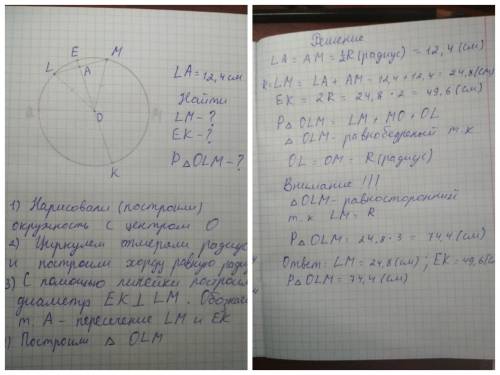 E
M
L
A
O
K
LA = 12,4 см
Найти
LM - ?
EK - ?
P△OLM - ?
1) Нарисовали (построили)
окружность с центром O
2) Циркулем отмеряли радиус
и построили хорду равную
3) С помощью линейки
диаметр EK ⊥ LM.
т. A - пересечение LM и EK
Построим △ OLM
Решение
LA = AM = (радиус) = 12,4 (см)
R = LM = LA + AM = 12,4 + 12,4 = 24,8 (см)
EK = 2R = 24,8 · 2 = 49,6 (см)
P△OLM = LM + MO + OL
△ OLM - равнобедренный т.к
OL = OM = R (радиус)
Внимание !!!
△OLM - равносторонний
т.к LM = R
P△OLM = 24,8 · 3 = 74,4 (см)
Ответ: LM = 24,8 (см); EK = 49,6
P△OLM = 74,4 (см)